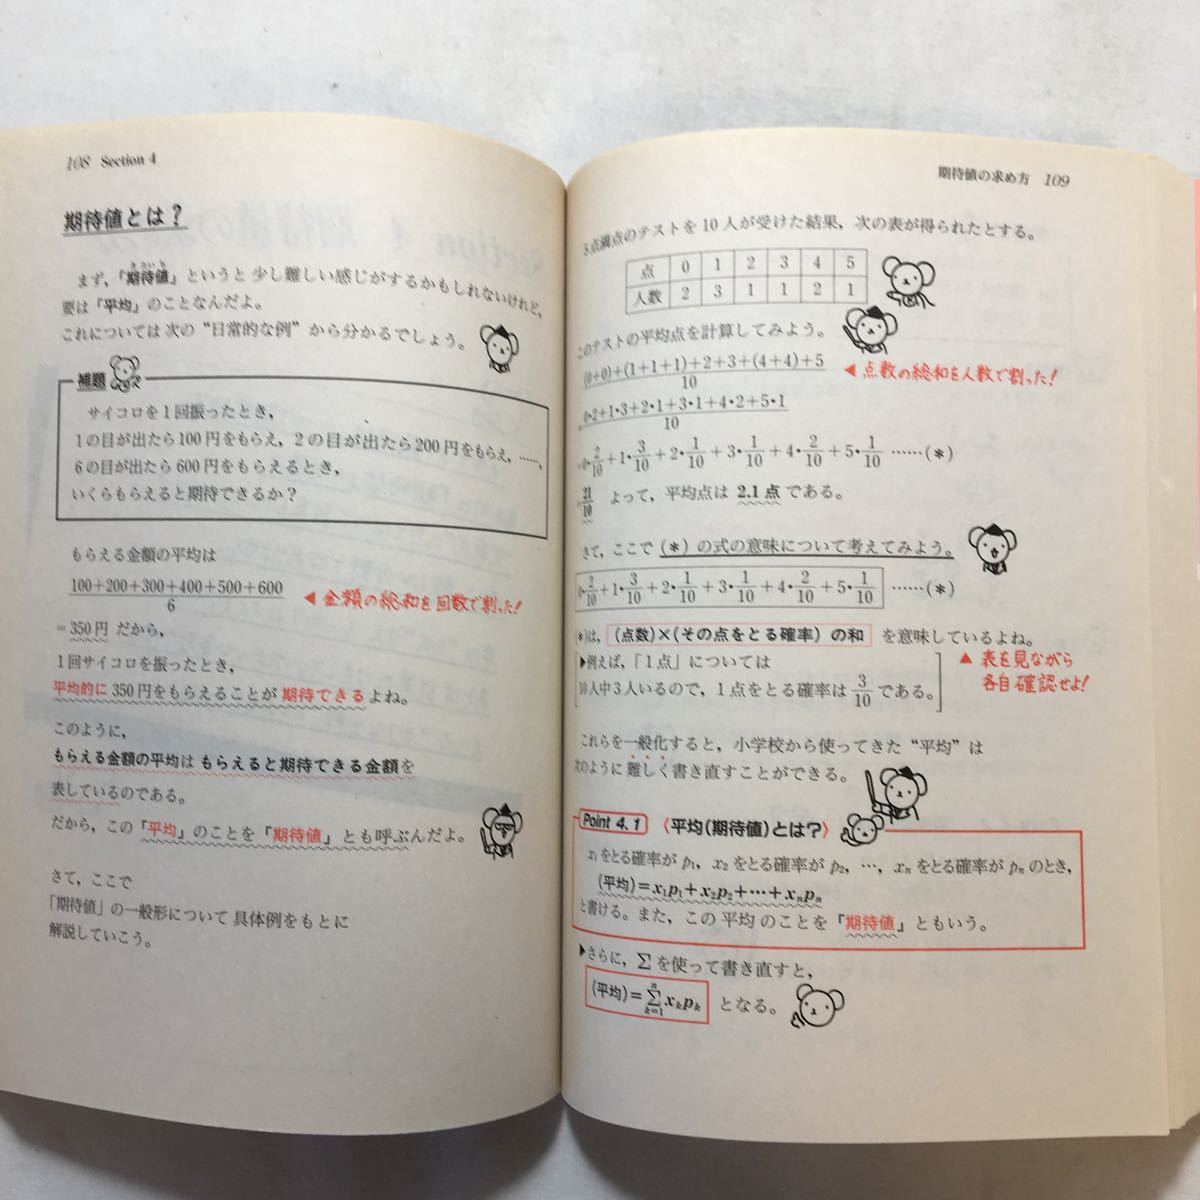 108 Section 4
期待値とは?
きたいち
まず,「期待値」というと 少し難しい感じがするかもしれないけれど,
要は「平均」のことなんだよ。
これについては次の“日常的な例”から分かるでしょう。
補題
サイコロを1回振ったとき,
1の目が出たら100円をもらえ, 2の目が出たら200円をもらえ, ……,
6の目が出たら600円をもらえるとき,
いくらもらえると期待できるか?
もらえる金額の平均は
100+200+300+400+500+600
6
◀金額の総和を回数で割った!
=350円 だから,
1回サイコロを振ったとき,
平均的に 350円をもらえることが 期待できる よね。
このように,
もらえる金額の平均は もらえると期待できる金額を
表しているのである。
だから, この「平均」のことを「期待値」とも呼ぶんだよ。
さて, ここで
「期待値」の一般形について 具体例をもとに
解説していこう。
期待値の求め方 109
5点満点のテストを10人が受けた結果, 次の表が得られたとする。
点 0 1 2 3 4 5
人数 2 3 1 1 2 1
このテストの平均点を計算してみよう。
(0+0)+(1+1+1)+2+3+(4+4)+5
10
◀点数の総和を人数で割った!
=0・2+1・3+2・1+3・1+4・2+5・1
10
=0・2/10+1・3/10+2・1/10+3・1/10+4・2/10+5・1/10 ……(*)
=21/10 よって, 平均点は 2.1点 である。
さて, ここで (*) の式の意味について考えてみよう。
0・2/10+1・3/10+2・1/10+3・1/10+4・2/10+5・1/10 ……(*)
(*)は, (点数)×(その点をとる確率) の和 を意味しているよね。
▶例えば,「1点」については
10人中3人いるので, 1点をとる確率は 3/10 である。
▲表を見ながら
各自確認せよ!
これらを一般化すると, 小学校から使ってきた“平均”は
次のように 難しく書き直すことができる。
Point 4.1 〈平均(期待値)とは?〉
x₁をとる確率が p₁, x₂をとる確率が p₂, …, xₙをとる確率が pₙのとき,
(平均)=x₁p₁+x₂p₂+…+xₙpₙ
と書ける。また, この 平均 のことを「期待値」ともいう。
▶さらに, Σを使って書き直すと,
(平均)=Σ[k=1→n] xₖpₖ となる。